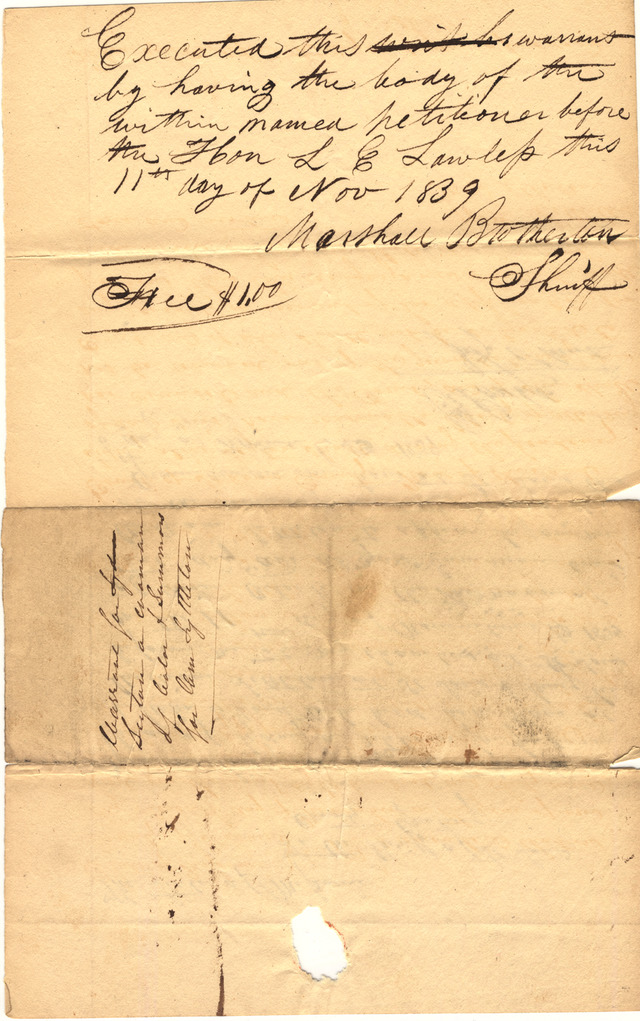 Executed this writ h s warrant
by having the body of the
within named petitioner before
the Hon L E Lawless this
11th day of Nov 1839
Marshall Brotherton
Sheriff
Fee $1.00
Warrant for
a woman
of Color & Summons
for Wm Lyttleton